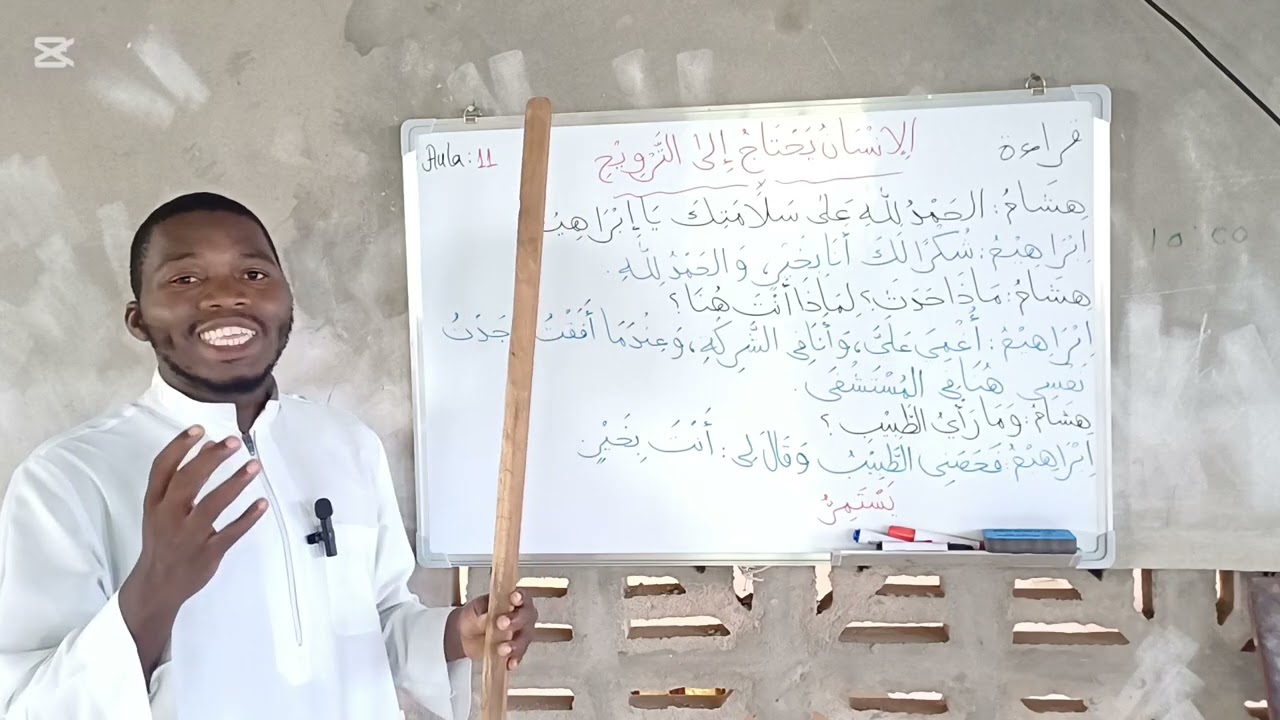 Aula: 11
قراءة
الإِنْسَانُ يَحْتَاجُ إِلَى التَّرْوِيْحِ
هِشَامُ: الحَمْدُ لِلَّهِ عَلَى سَلَامَتِكَ يَا إِبْرَاهِيْمُ
إِبْرَاهِيْمُ: شُكْرًا لَكَ أَنَا بِخَيْرٍ، وَالحَمْدُ لِلَّهِ.
هِشَامُ: مَاذَا حَدَثَ؟ لِمَاذَا أَنْتَ هُنَا؟
إِبْرَاهِيْمُ: أُغْمِيَ عَلَيَّ، وَأَنَا فِي الشَّرِكَةِ، وَعِنْدَمَا أَفَقْتُ وَجَدْتُ
نَفْسِي هُنَا فِي المُسْتَشْفَى.
هِشَامُ: وَمَا رَأْيُ الطَّبِيْبِ؟
إِبْرَاهِيْمُ: فَحَصَنِي الطَّبِيْبُ وَقَالَ لِي: أَنْتَ بِخَيْرٍ
يَسْتَمِرُّ